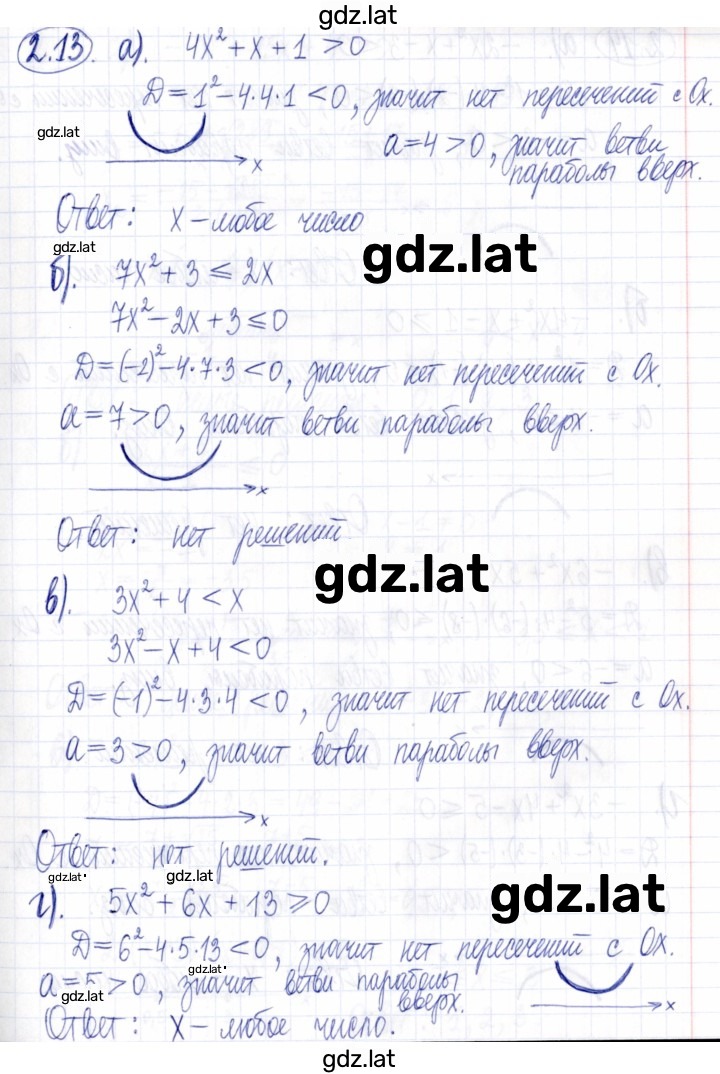 gdz.lat
2.13. а). 4x² + x + 1 > 0
D = 1² - 4·4·1 < 0, значит нет пересечений с Ox.
gdz.lat
a = 4 > 0, значит ветви
параболы вверх.
x
Ответ: x – любое число
gdz.lat
gdz.lat
б). 7x² + 3 ≤ 2x
7x² - 2x + 3 ≤ 0
D = (-2)² - 4·7·3 < 0, значит нет пересечений с Ox.
a = 7 > 0, значит ветви параболы вверх.
x
Ответ: нет решений
gdz.lat
в). 3x² + 4 < x
3x² - x + 4 < 0
D = (-1)² - 4·3·4 < 0, значит нет пересечений с Ox.
a = 3 > 0, значит ветви параболы вверх.
x
Ответ: нет решений.
gdz.lat
gdz.lat
gdz.lat
г). 5x² + 6x + 13 ≥ 0
D = 6² - 4·5·13 < 0, значит нет пересечений с Ox.
gdz.lat
a = 5 > 0, значит ветви параболы
вверх.
gdz.lat
x
Ответ: x – любое число.
gdz.lat